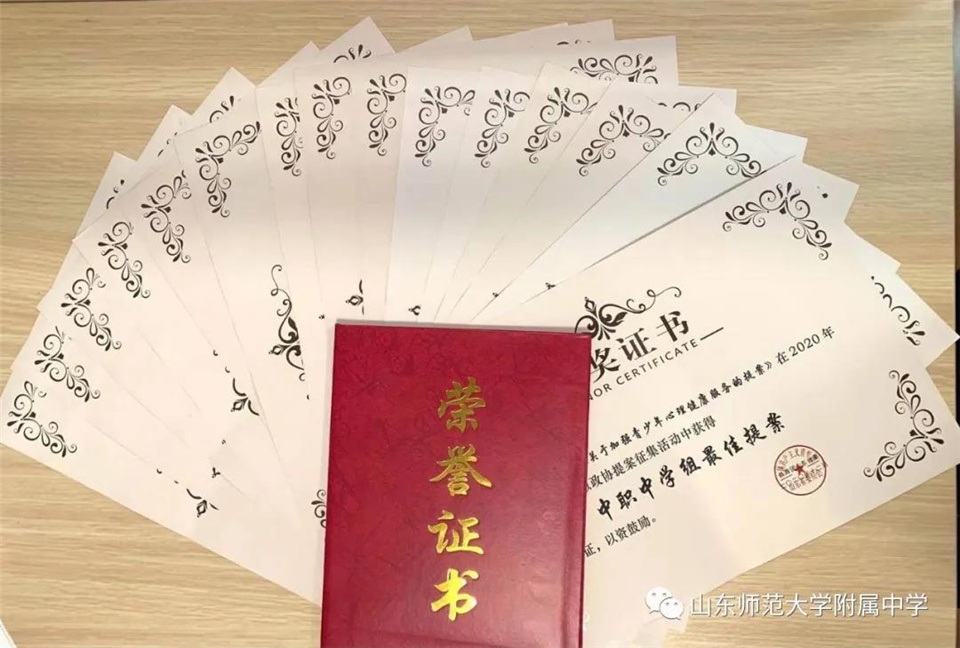 奖证书
NOR CERTIFICATE
关于加强青少年心理健康服务的提案》在2020年
政协提案征集活动中获得
中职中学组最佳提案
证，以资鼓励。
荣
誉
证
书
山东师范大学附属中学